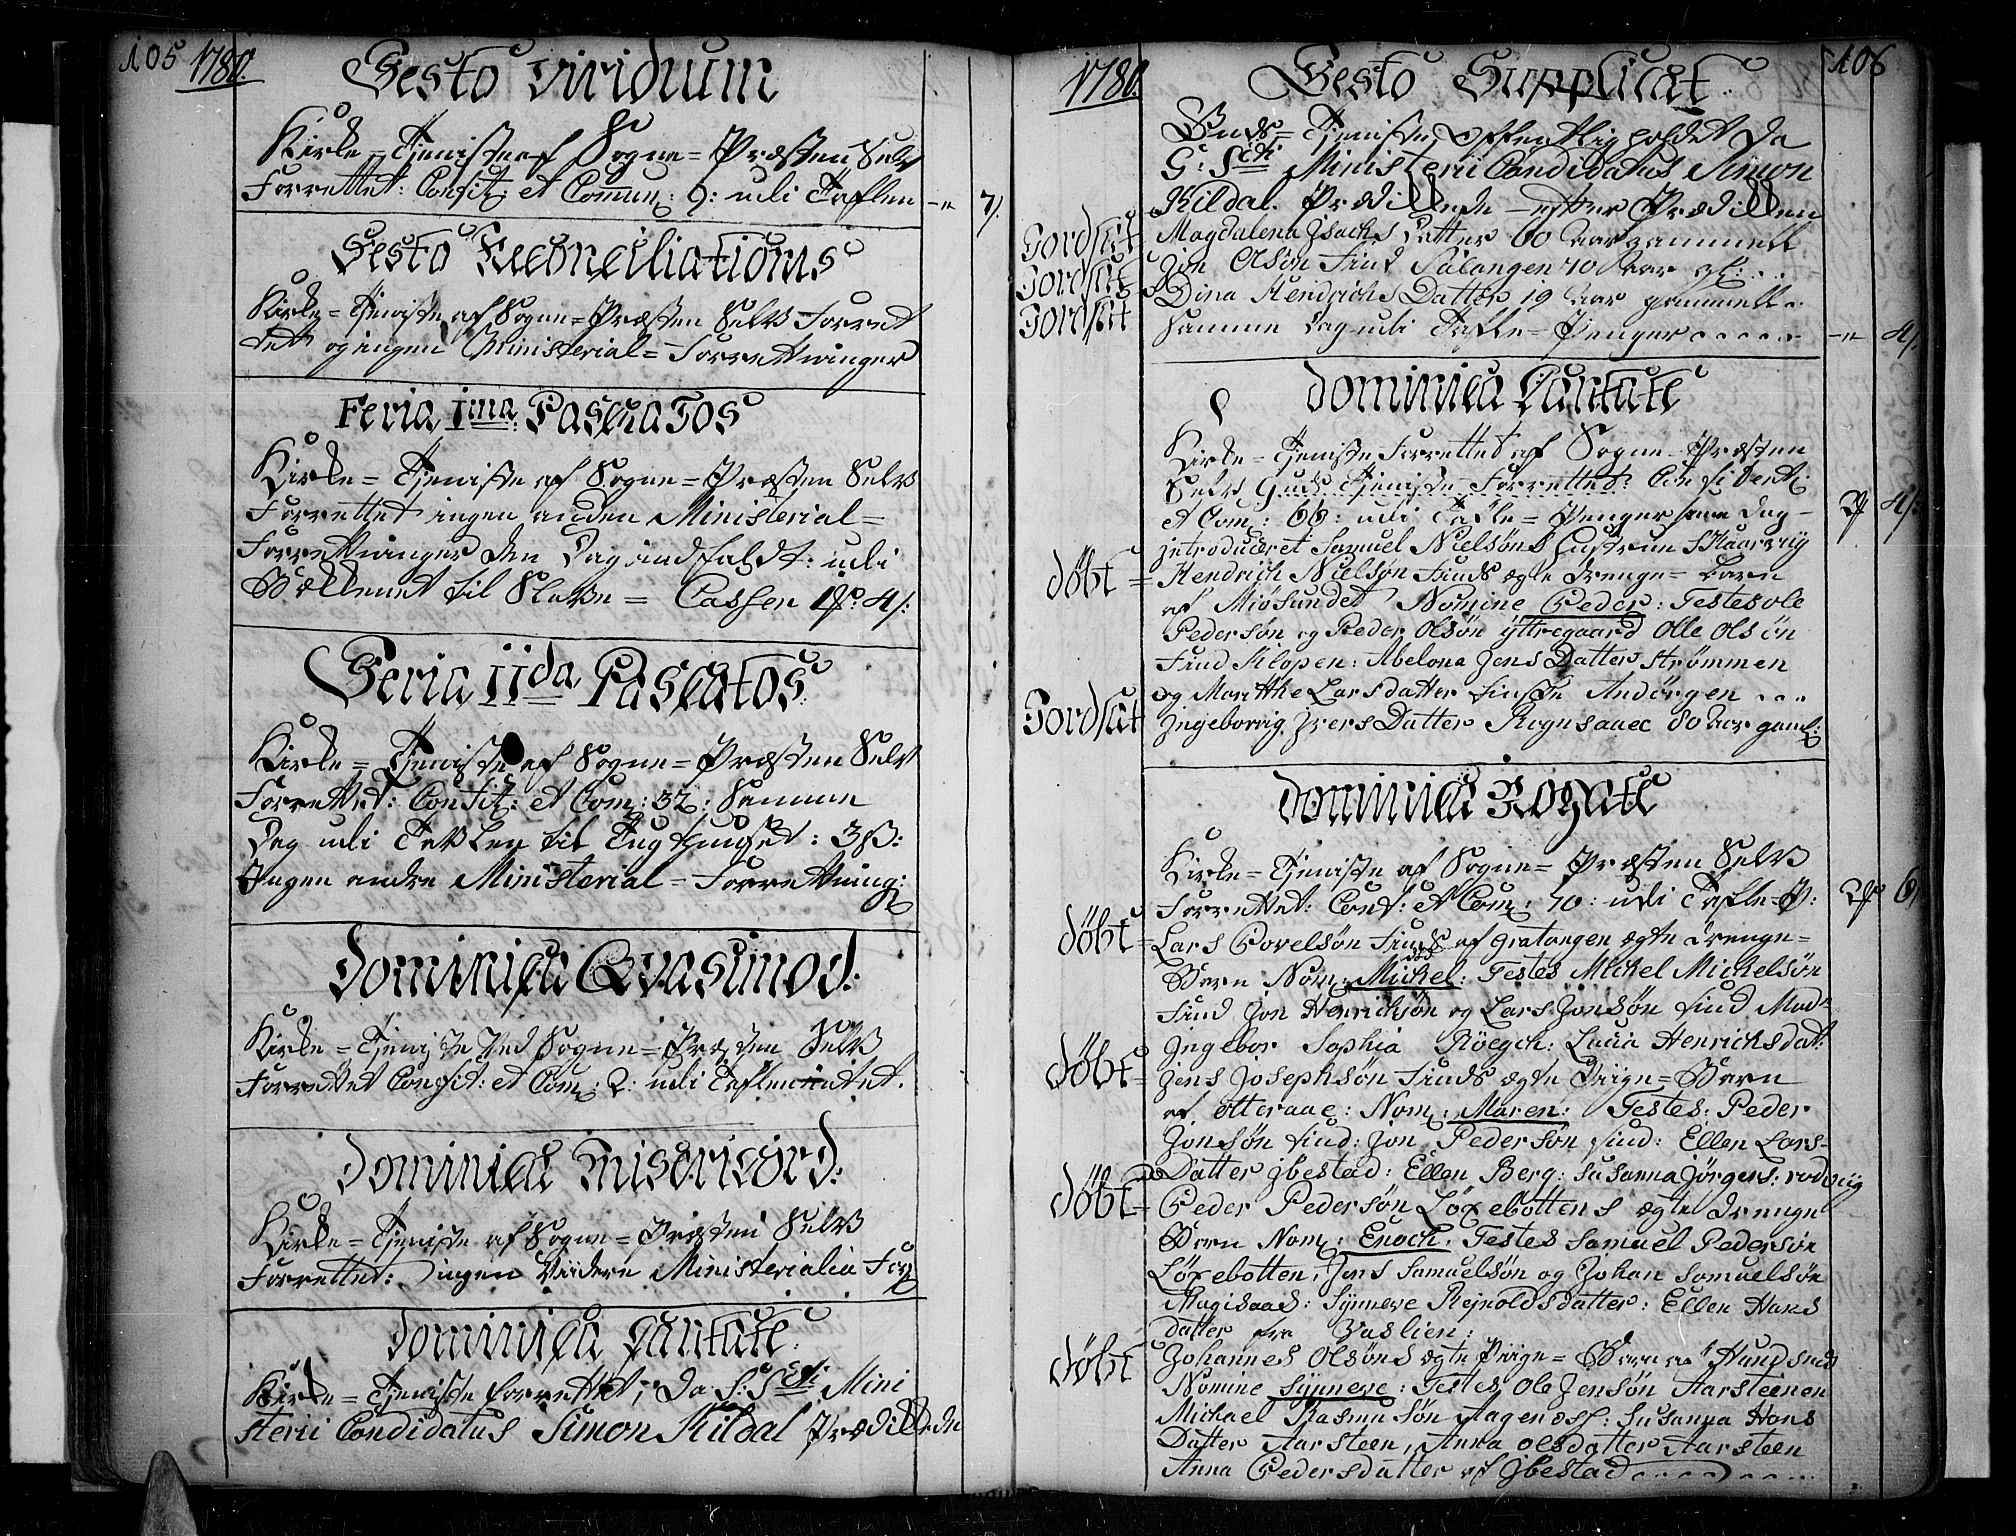 105 1780.
Festo Viridium
Kirke=Tjeniste af Sogne=Præsten Selv
Forrettet: Confit: et Commun: 9: udi Taflen 7/.
Festo Reconciliationis
Kirke=Tjeniste af Sogne=Præsten Selv Forret
tet og ingen Ministerial=Forrettninger
Feria Ima Paschatos
Kirke=Tjeniste af Sogne=Præsten Selv
Forrettet ingen anden Ministerial=
Forrettninger den Dag indfaldt: udi
Bækkenet til Slave=Cassen 4/:
Feria IIda Paschatos
Kirke=Tjeniste af Sogne=Præsten Selv
Forrettet: Confit: et Com: 32: Samme
Dag udi Tavlen til Tugthuuset: 3ß:
Ingen andre Ministerial=Forrettning:
Dominica Qvasimod:
Kirke=Tjeniste ved Sogne=Præsten Selv
Forrettet Confit: et Com: 2: udi Taflen intet.
Dominica Misericord:
Kirke=Tjeniste af Sogne=Præsten Selv
Forrettet: ingen Viidere Ministerialia For:
Dominica Cantate:
Kirke=Tjeniste forrettet, da S: Scti Mini
sterii Candidatus Simon Kildal Prædikede
1780. 106
Festo Supplicat
Guds=Tjeniste offentlig holdet da
S: Scti Ministerii Candidatus Simon
Kildal Prædikede efter Prædiken
Jordsat Magdalena Isachs Datter 60 aar gammell
Jordsat Jon Olsøn Find Salangen 70 aar gl:
Jordsat Dina Hendrichs Datter 19 aar gammell
Samme Dag udi Tafle=Penger 4/:
Dominica Cantate
Kirke=Tjeniste Forrettet af Sogne Præsten
Selv Guds Tjeniste Forrettet: Confident:
et Com: 66: udi Tafle=Penger samme Dag 4/:
introduceret Samuel Nielsøns Hustrue
døbt= Hendrich Nielsøn Finds ægte Drenge=barn
af Miøsundet Nomine Peder: Testes ole
Pedersøn og Peder Olsøn yttregaard Olle Olsøn
Find Klopen: Abelona Jens Datter Strømmen
og Maritthe Larsdatter Andørgen
Jordsat Ingeborrig Ivers Datter 80 aar gaml:
Dominica Rogate
Kirke=Tjeniste af Sogne=Præsten Selv
Forrettet: Conf: et Com: 70: udi Tafle=P: 6/
døbt= Lars Povelsøn Finds af gratangen ægte Drenge=
Barn Nom: Mickel: Testes Mickel Mickelsøn
Find Jon Henricksøn og Lars Jonsøn Find Mad:
Ingebor Sophia Röegch: Lucia Henrichsdat:
døbt= Jens Josephsøn Finds ægte Piige=Barn
af otteraae: Nom: Maren: Testes: Peder
Jonsøn find: Jon Pedersøn find: Ellen Lars=
Datter Ibestad: Ellen Berg: Susanna Jørgens: rodvig
døbt= Peder Pedersøn Löxebottens ægte Drenge
Barn Nom: Enoch: Testes Samuel Pedersøn
Löxebotten, Jens Samuelsøn og Johan Samuelsøn
Synneve Rejnoldsdatter: Ellen Hans
datter fra Vaslien:
døbt Johannes Olsøns ægte Piige=Barn af Hundsund
Nomine Synneve: Testes Ole Jensøn Aarsteinen
Michael Rasmusøn Susanna Hans
Datter Aarsteen, Anna Olsdatter Aarsteen
Anna Pedersdatter af Ibestad